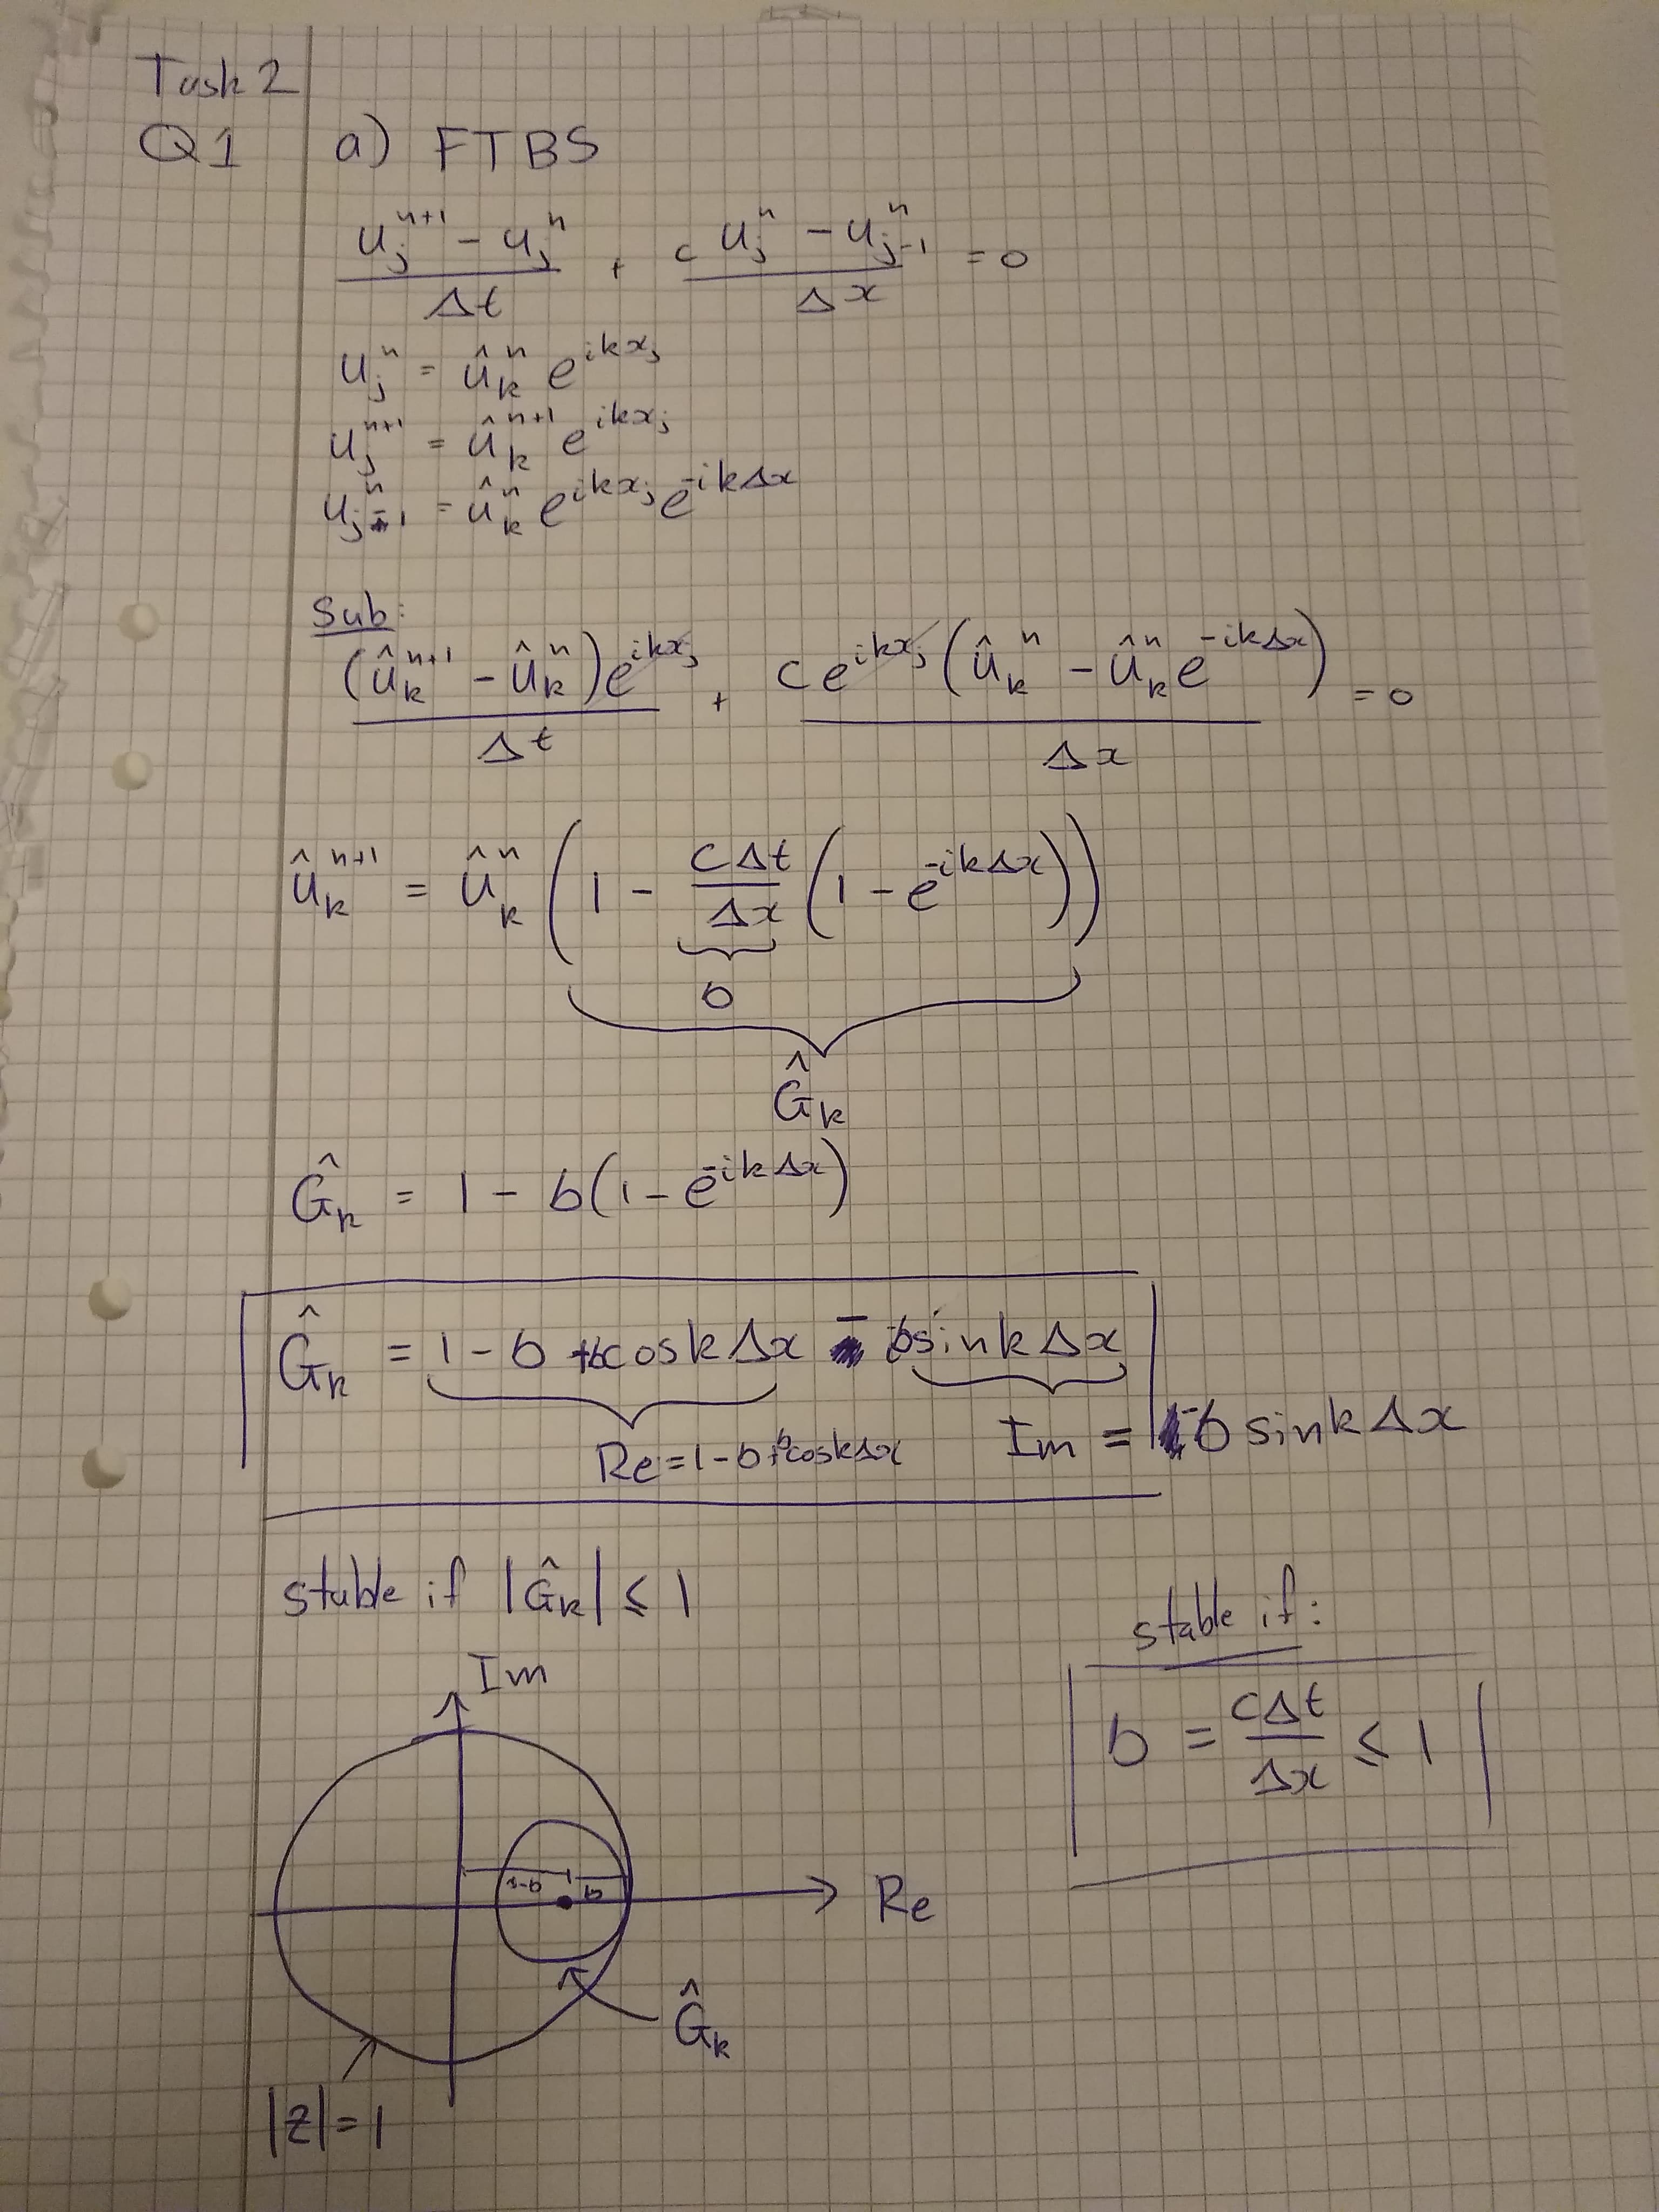 Task 2
Q1 a) FTBS
(u_j^{n+1} - u_j^n)/Δt + c (u_j^n - u_{j-1}^n)/Δx = 0
u_j^n = û_k^n e^{ikx_j}
u_j^{n+1} = û_k^{n+1} e^{ikx_j}
u_{j-1}^n = û_k^n e^{ikx_j} e^{-ikΔx}
Sub:
(û_k^{n+1} - û_k^n)e^{ikx_j}/Δt + c e^{ikx_j}(û_k^n - û_k^n e^{-ikΔx})/Δx = 0
û_k^{n+1} = û_k^n (1 - cΔt/Δx (1 - e^{-ikΔx}))
b
Ĝ_k
Ĝ_k = 1 - b(1 - e^{-ikΔx})
Ĝ_k = 1 - b + b cos kΔx - ib sin kΔx
Re = 1 - b + b cos kΔx Im = -b sin kΔx
stable if |Ĝ_k| ≤ 1
stable if:
b = cΔt/Δx ≤ 1
Im
1-b b
Re
Ĝ_k
|z| = 1